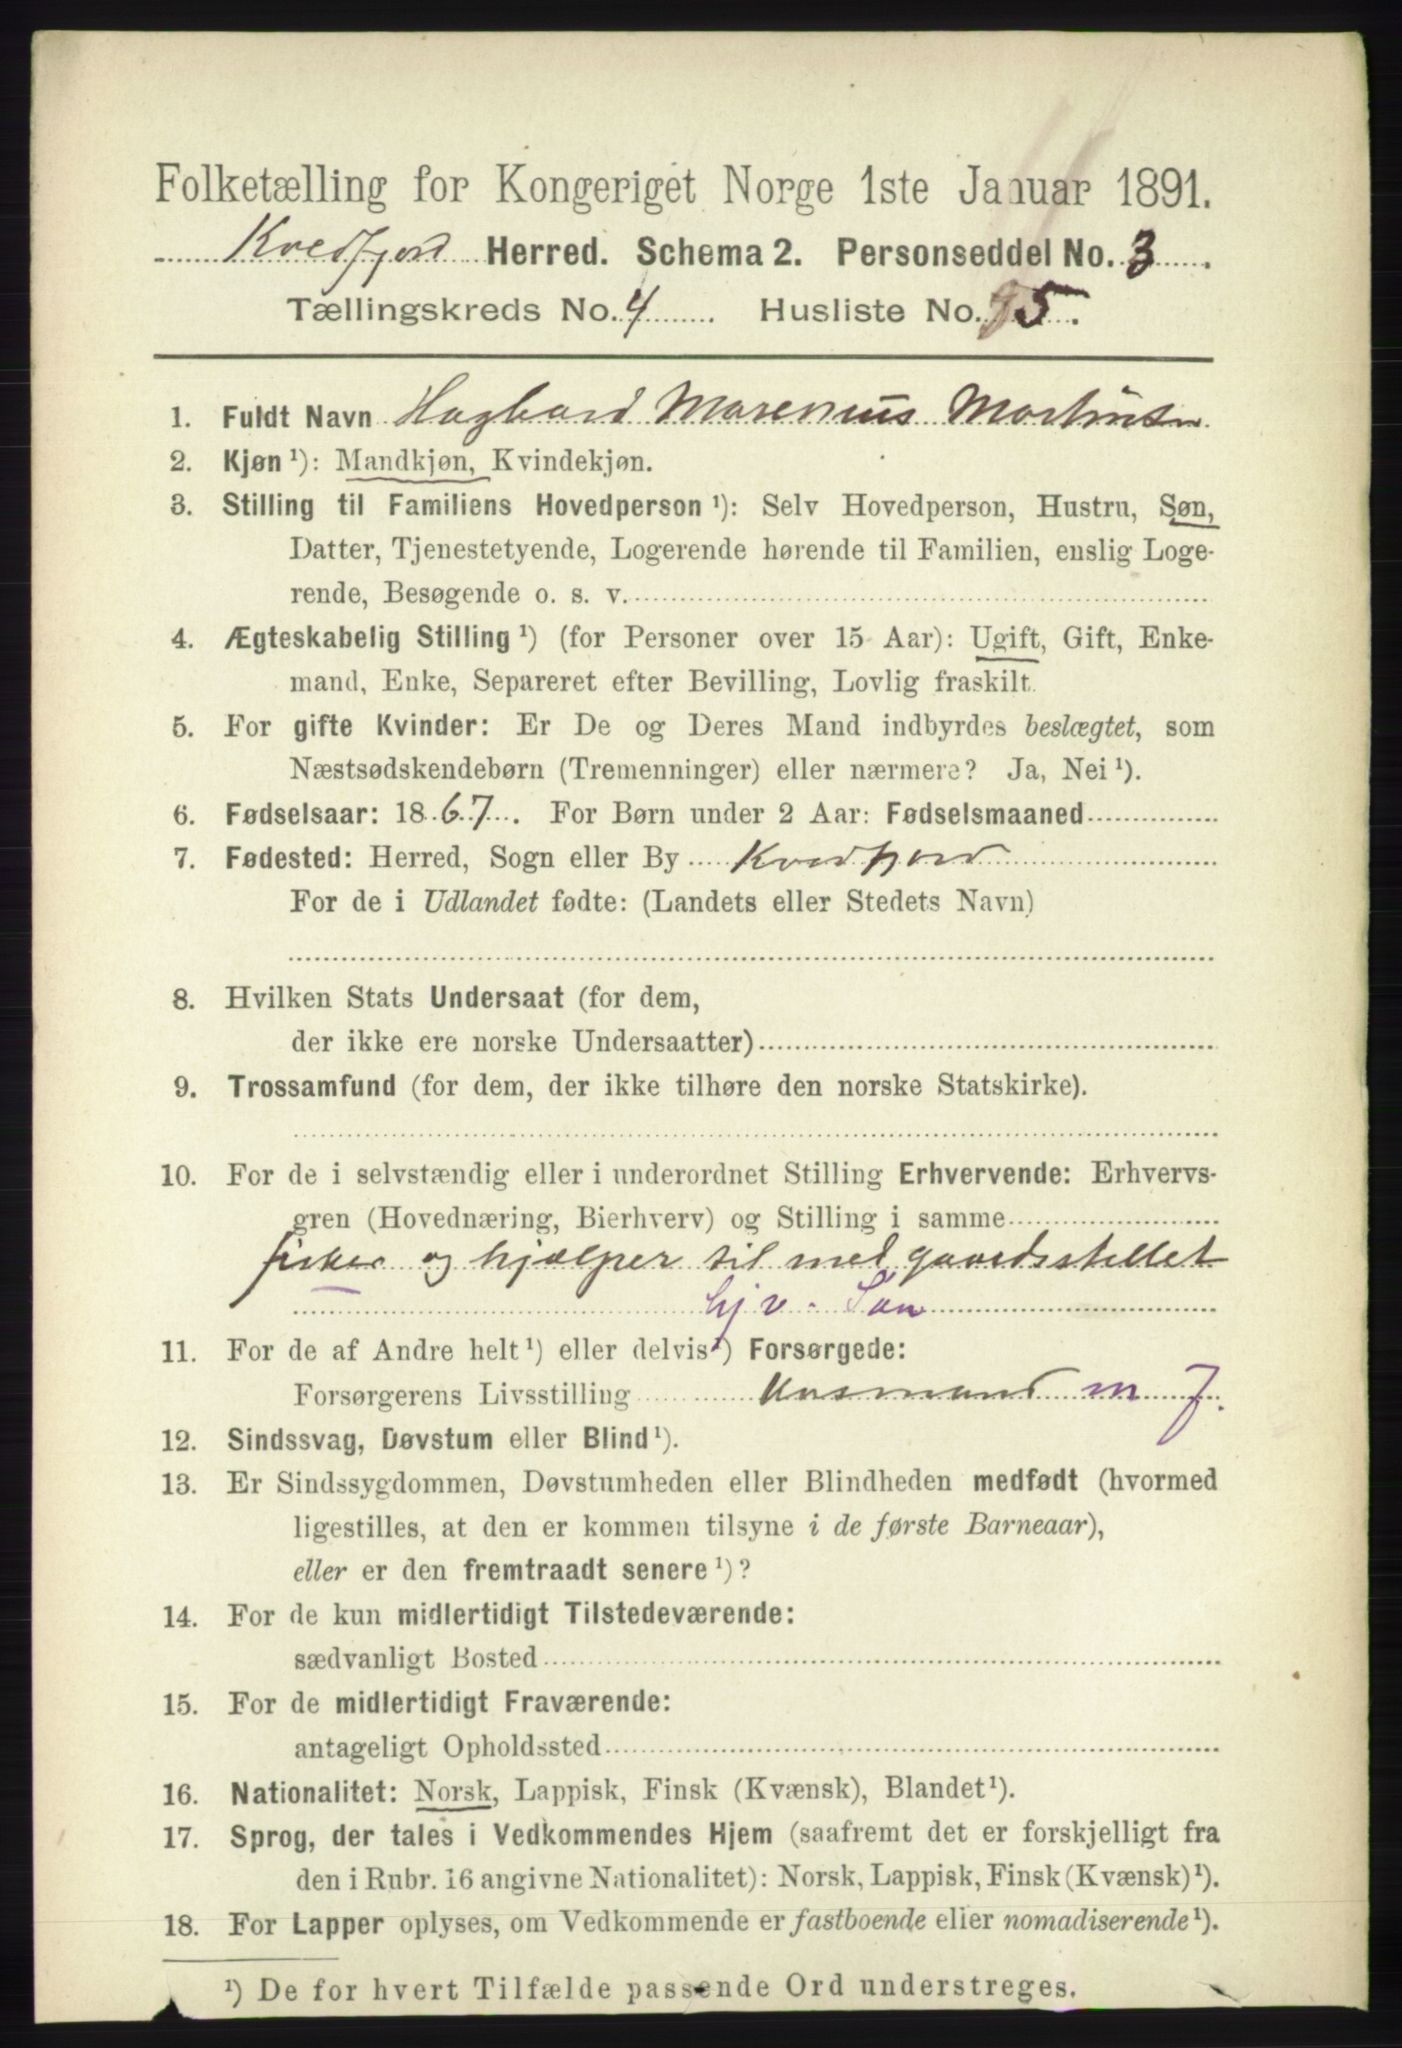 Folketælling for Kongeriget Norge 1ste Januar 1891.
Kvedfjord Herred. Schema 2. Personseddel No. 3.
Tællingskreds No. 4. Husliste No. 5.
1. Fuldt Navn Hagbard Marenius Martinsen
2. Kjøn ¹): Mandkjøn, Kvindekjøn.
3. Stilling til Familiens Hovedperson ¹): Selv Hovedperson, Hustru, Søn,
Datter, Tjenestetyende, Logerende hørende til Familien, enslig Loge-
rende, Besøgende o. s. v.
4. Ægteskabelig Stilling ¹) (for Personer over 15 Aar): Ugift, Gift, Enke-
mand, Enke, Separeret efter Bevilling, Lovlig fraskilt.
5. For gifte Kvinder: Er De og Deres Mand indbyrdes beslægtet, som
Næstsødskendebørn (Tremenninger) eller nærmere? Ja, Nei ¹).
6. Fødselsaar: 1867. For Børn under 2 Aar: Fødselsmaaned
7. Fødested: Herred, Sogn eller By Kvedfjord
For de i Udlandet fødte: (Landets eller Stedets Navn)
8. Hvilken Stats Undersaat (for dem,
der ikke ere norske Undersaatter)
9. Trossamfund (for dem, der ikke tilhøre den norske Statskirke).
10. For de i selvstændig eller i underordnet Stilling Erhvervende: Erhvervs-
gren (Hovednæring, Bierhverv) og Stilling i samme
fisker og hjælper til med gaardsstellet
hjv. Søn
11. For de af Andre helt ¹) eller delvis ¹) Forsørgede:
Forsørgerens Livsstilling Husmand m J.
12. Sindssvag, Døvstum eller Blind ¹).
13. Er Sindssygdommen, Døvstumheden eller Blindheden medfødt (hvormed
ligestilles, at den er kommen tilsyne i de første Barneaar),
eller er den fremtraadt senere ¹)?
14. For de kun midlertidigt Tilstedeværende:
sædvanligt Bosted
15. For de midlertidigt Fraværende:
antageligt Opholdssted
16. Nationalitet: Norsk, Lappisk, Finsk (Kvænsk), Blandet ¹).
17. Sprog, der tales i Vedkommendes Hjem (saafremt det er forskjelligt fra
den i Rubr. 16 angivne Nationalitet): Norsk, Lappisk, Finsk (Kvænsk) ¹).
18. For Lapper oplyses, om Vedkommende er fastboende eller nomadiserende ¹).
¹) De for hvert Tilfælde passende Ord understreges.